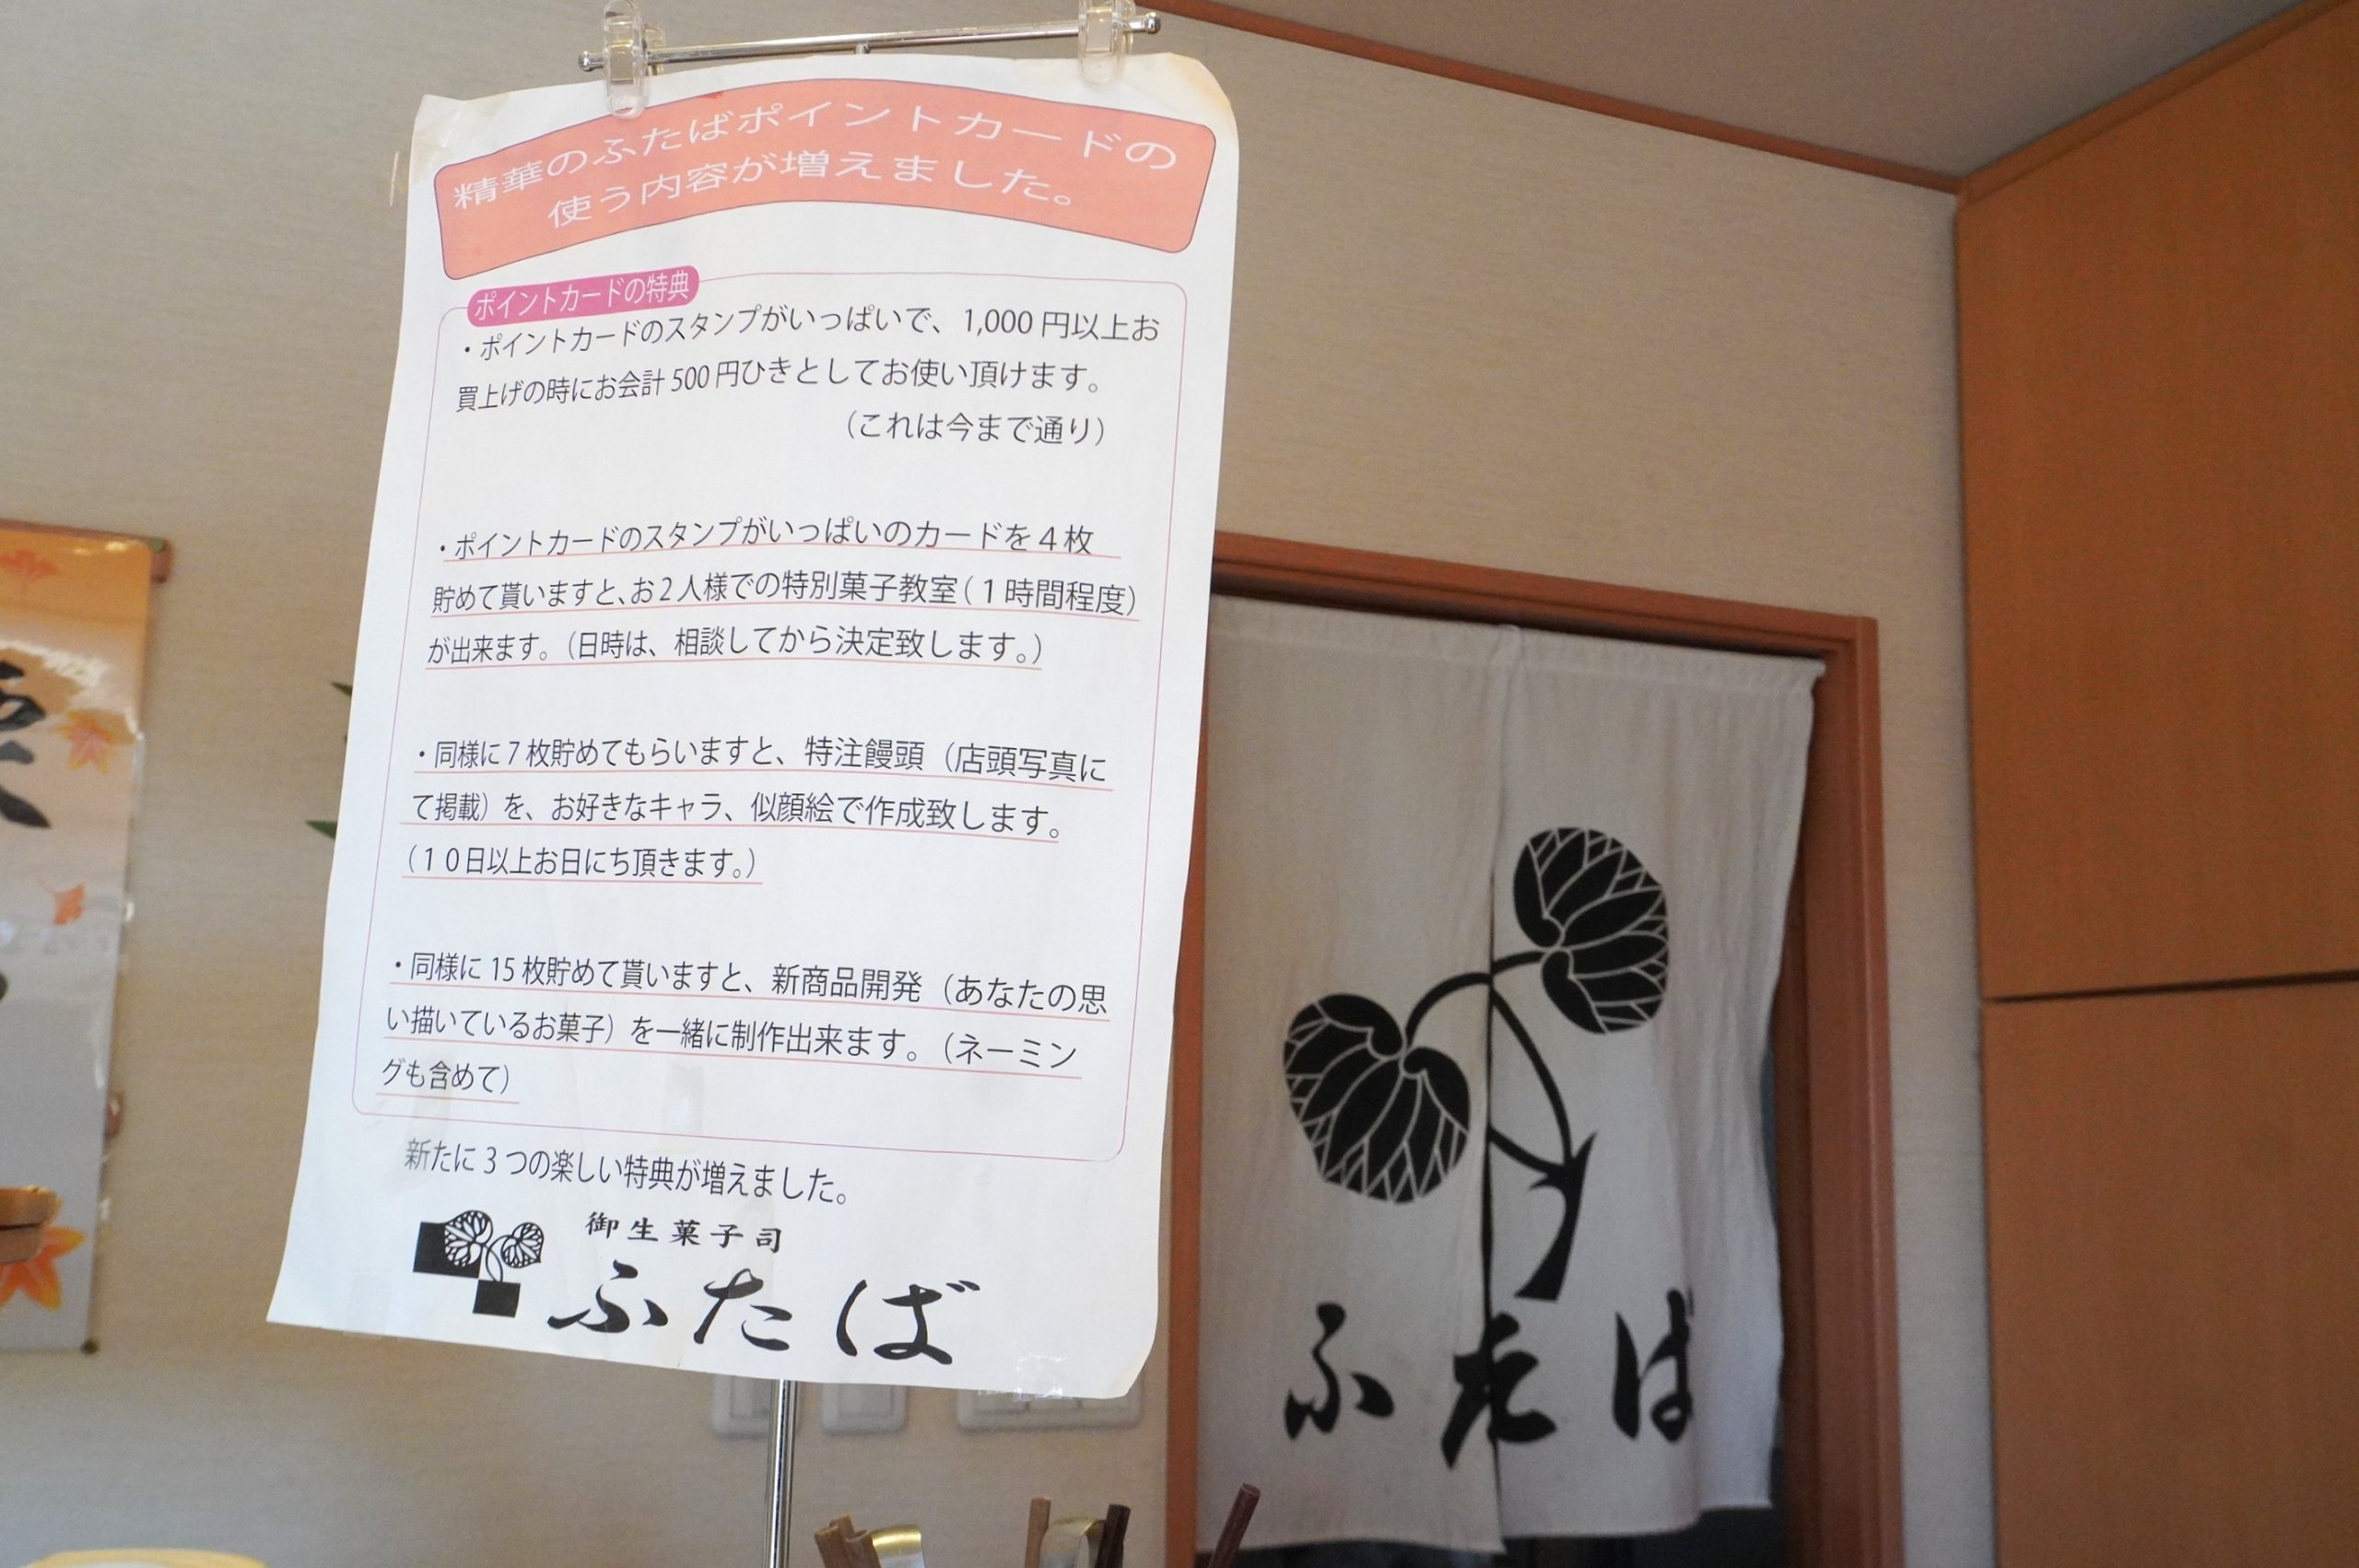 精華のふたばポイントカードの
使う内容が増えました。
ポイントカードの特典
・ポイントカードのスタンプがいっぱいで、1,000 円以上お
買上げの時にお会計 500 円ひきとしてお使い頂けます。
（これは今まで通り）
・ポイントカードのスタンプがいっぱいのカードを４枚
貯めて貰いますと、お２人様での特別菓子教室（１時間程度）
が出来ます。（日時は、相談してから決定致します。）
・同様に７枚貯めてもらいますと、特注饅頭（店頭写真に
て掲載）を、お好きなキャラ、似顔絵で作成致します。
（１０日以上お日にち頂きます。）
・同様に 15 枚貯めて貰いますと、新商品開発（あなたの思
い描いているお菓子）を一緒に制作出来ます。（ネーミン
グも含めて）
新たに３つの楽しい特典が増えました。
御生菓子司
ふたば
ふたば